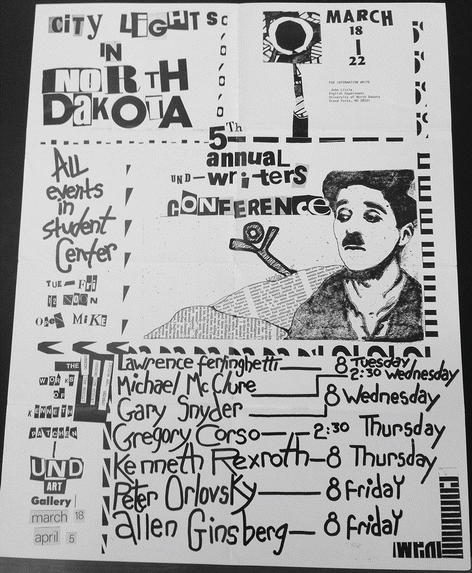 City Lights
IN
NORTH
DaKOTA
MARCH
18
22
FOR INFORMATION WRITE
John Little
English Department
University of North Dakota
Grand Forks, ND 58201
5Th
annuaL
UND-writers
CONFERENCe
ALL
events
in
student
Center
TUE-FRI
12 NOON
OPEN MIKE
THE
WORKS
OF
KENNETH
PATCHEN
UND
ART
Gallery
march 18
april 5
Lawrence ferlinghetti 8 Tuesday
2:30 Wednesday
Michael McClure
Gary Snyder 8 Wednesday
Gregory Corso 2:30 Thursday
Kenneth Rexroth 8 Thursday
Peter Orlovsky 8 Friday
allen Ginsberg 8 friday